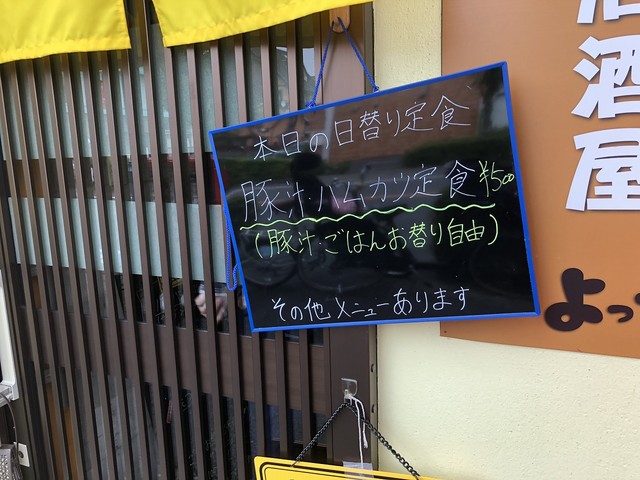 本日の日替り定食
豚汁・ハムカツ定食¥500
(豚汁・ごはんお替り自由)
その他メニューあります
酒屋
よっ